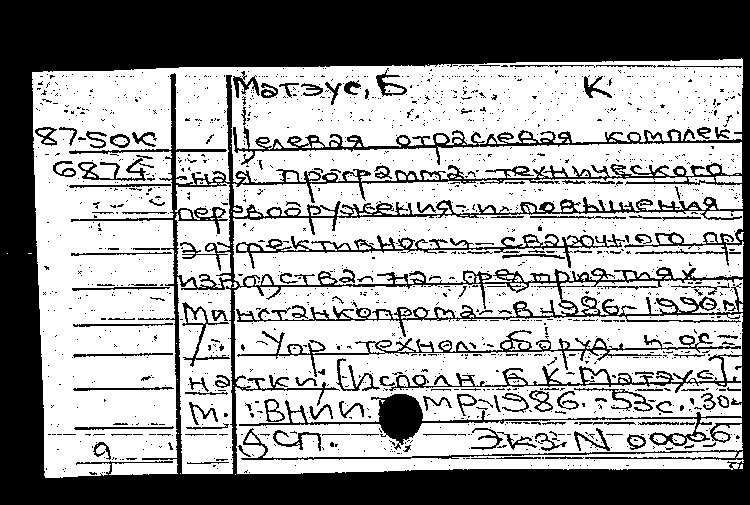 Матэус, Б К
87-50К Целевая отраслевая комплек-
6874 сная программа технического
перевооружения и повышения
эффективности сварочного про
изводства на предприятиях
Минстанкопрома в 1986-1990
/. Упр. технол. оборуд. и ос=
настки; [Исполн. Б.К. Матэус].
М.: ВНИИТ МР, 1986. - 53с.; 30
ДСП. Экз. N 00066.
9